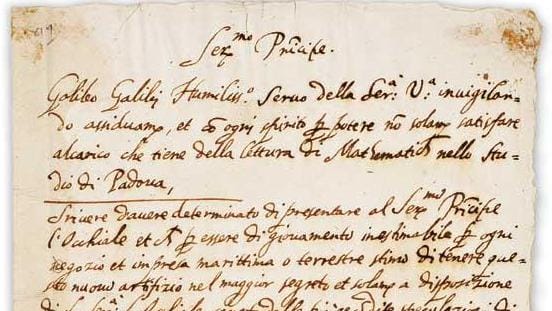 Ser.mo Prīcipe.
Galileo Galilej Humiliss.o Servo della Ser.a V.a invigilan-
do assiduam.te, et cō ogni spirito ꝑ potere nō solam.te satisfare
alcarico che tiene della lettura di Mathematich nello Stu-
dio di Padova,
Scrivere d'avere determinato di presentare al Ser.mo Prīcipe
l'Occhiale et ꝑ essere di giovamento inestimabile ꝑ ogni
negozio et impresa marittima o terrestre stimo di tenere que-
sto nuovo artifizio nel maggior segreto et solam.te a disposizione